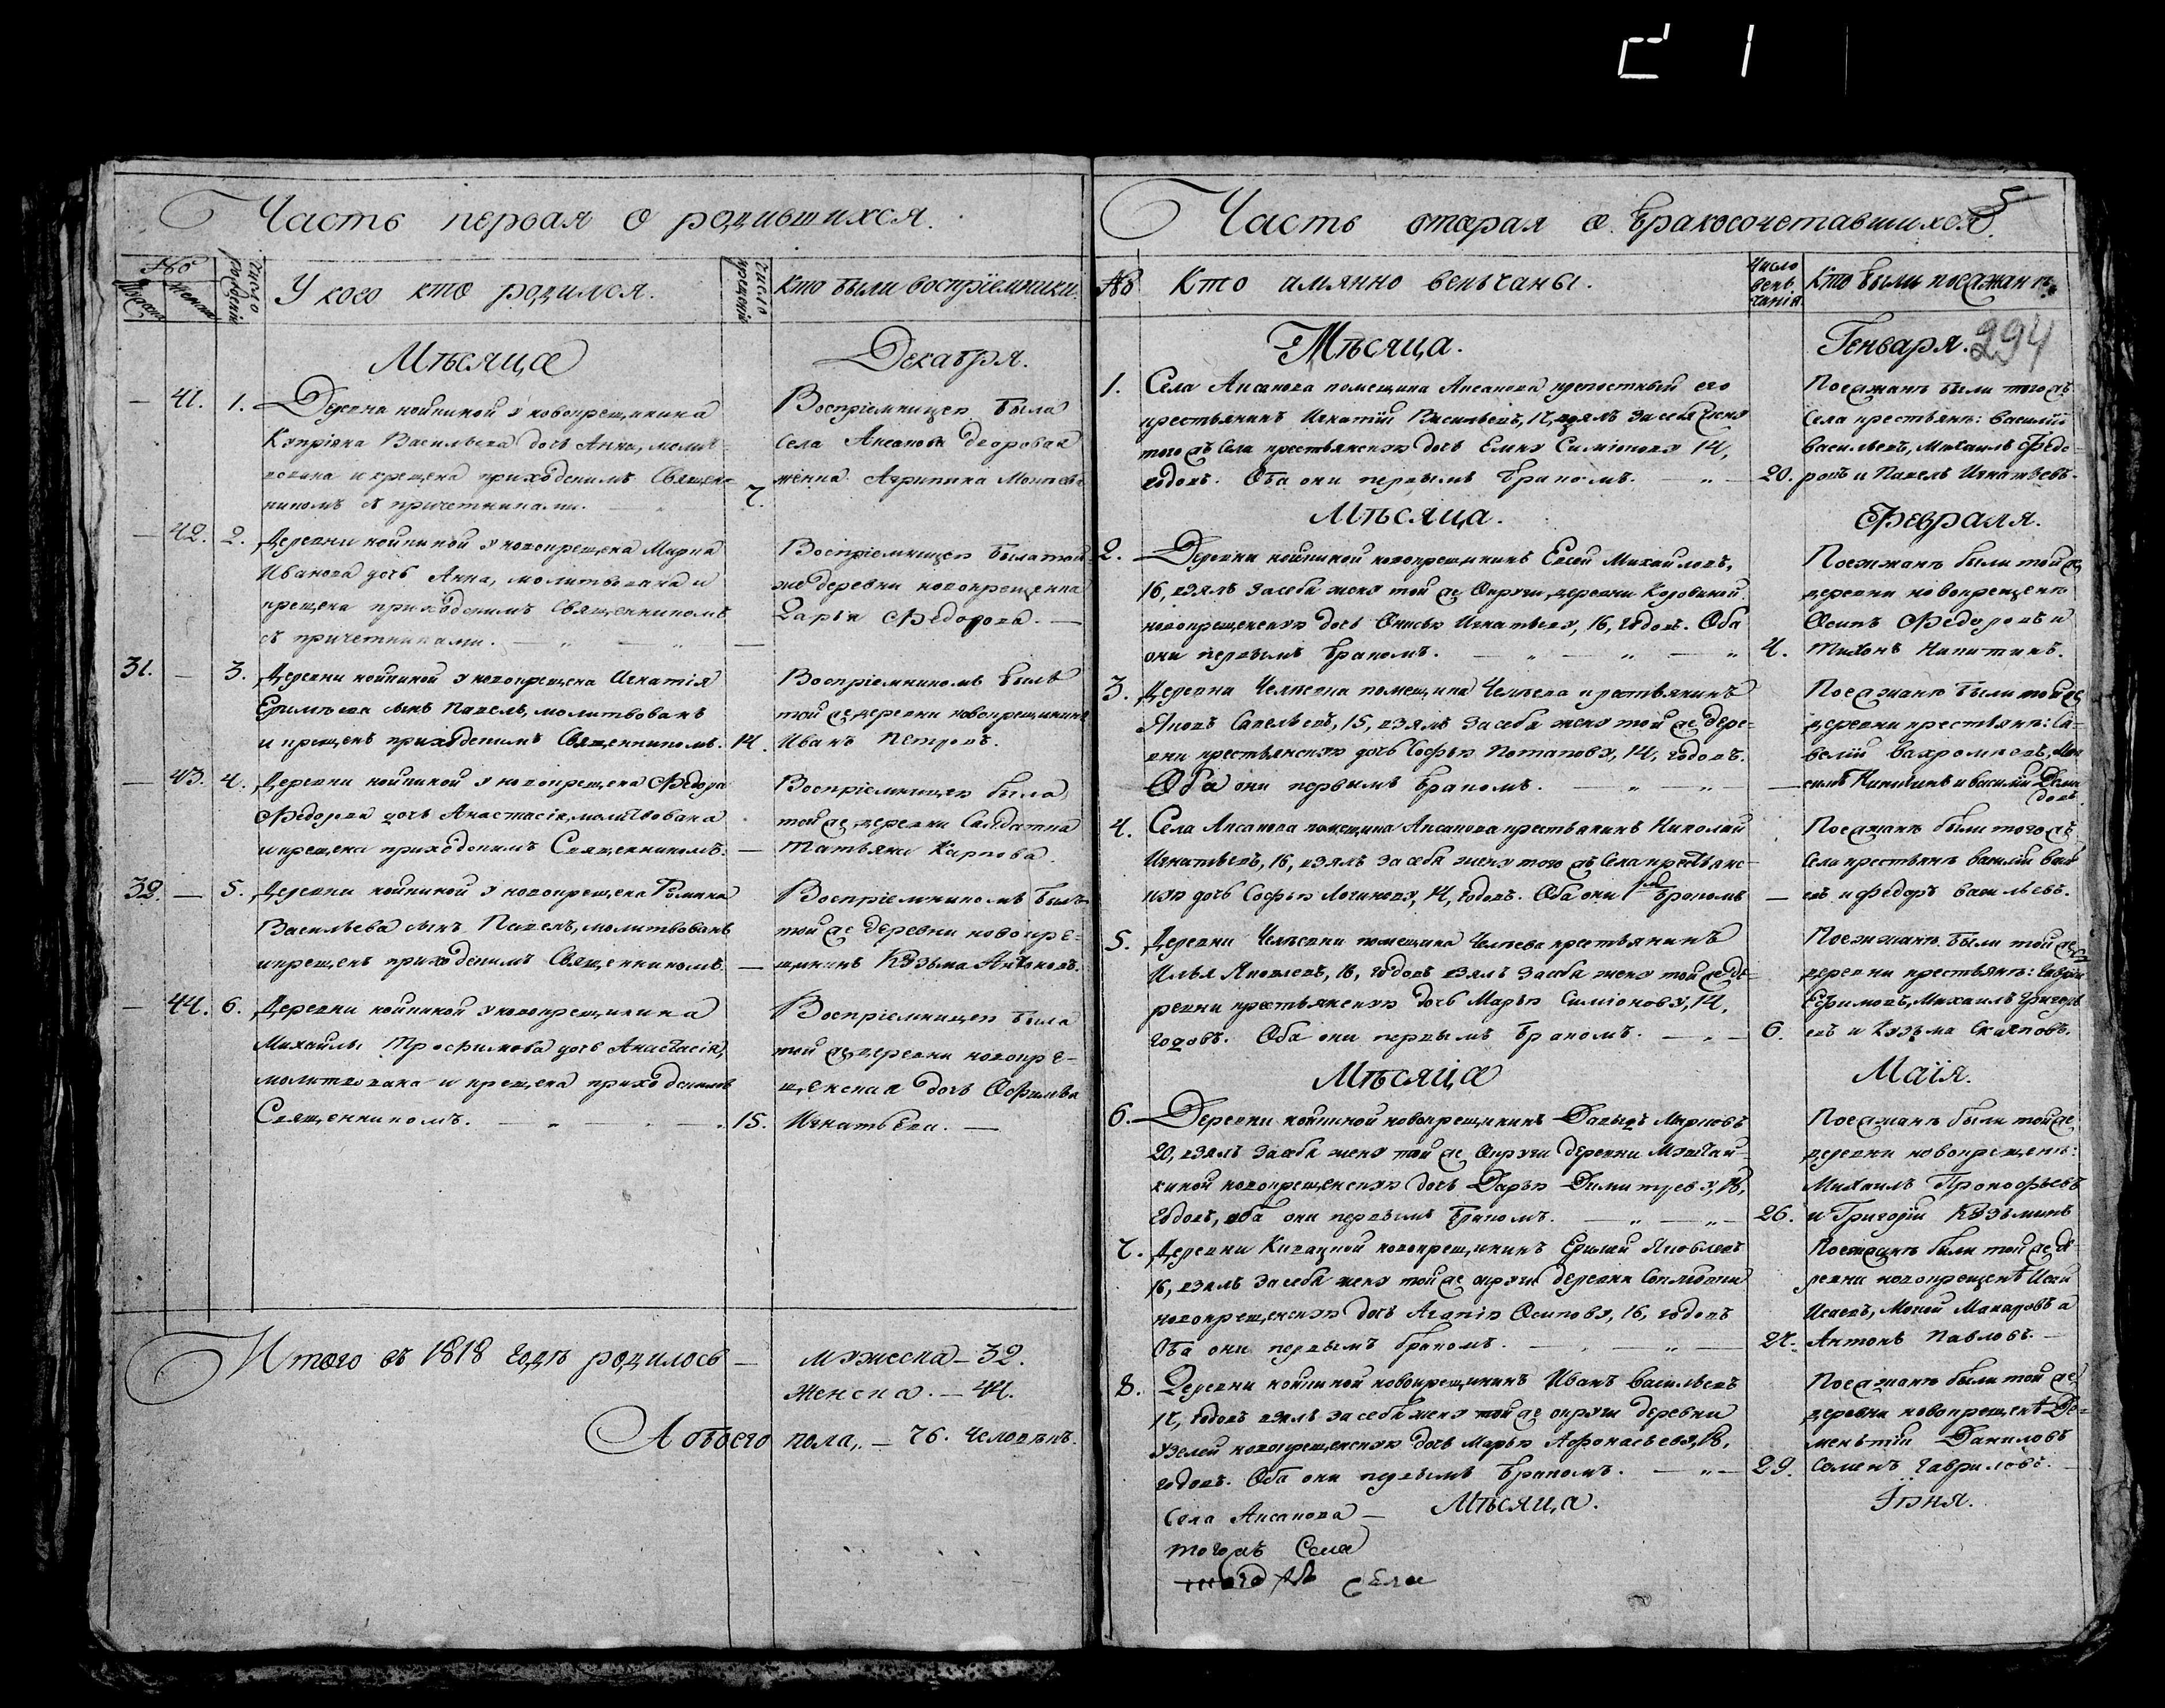 Часть первая о родившихся.
№
Мужеска
Женска
Число рождения
У кого кто родился.
Число крещения
Кто были воспрiемники.
Мѣсяца Декабря.
41. 1. Деревни койпиной у новокрещенина
Кипріяна Васильева дочь Анна, молит-
вована и крещена приходскимъ Священ-
никомъ съ причетниками. 7.
Воспрiемницею была
села Аксанова дворовая
женка Агрипина
42. 2. Деревни койпиной у новокрещена Марка
Иванова дочь Анна, молитвована и
крещена приходскимъ Священникомъ
съ причетниками. —
Воспрiемницею была той
же деревни новокрещенка
Дарья Ѳедорова. —
31. — 3. Деревни койпиной у новокрещена Игнатiя
сынъ Павелъ, молитвованъ
и крещенъ приходскимъ Священникомъ. 14.
Воспрiемникомъ былъ
той же деревни новокрещенинъ
Иванъ Петровъ.
— 43. 4. Деревни койпиной у новокрещена Ѳедора
Ѳедорова дочь Анастасiя, молитвована
и крещена приходскимъ Священникомъ. —
Воспрiемницею была
той же деревни Салдатка
Татьяна Карпова.
32. — 5. Деревни койпиной у новокрещена Романа
Васильева сынъ Павелъ, молитвованъ
и крещенъ приходскимъ Священникомъ. —
Воспрiемникомъ былъ
той же деревни новокре-
щенинъ Козьма Антоновъ.
— 44. 6. Деревни койпиной у новокрещенина
Михайлы Трофимова дочь Анастасiя,
молитвована и крещена приходскимъ
Священникомъ. 15.
Воспрiемницею была
той же деревни новокре-
щенская дочь
Игнатьева. —
Итого въ 1818 годѣ родилось — мужеска — 32.
женска. — 44.
А обоего пола, — 76. человѣкъ.
5
Часть вторая о бракосочетавшихся.
№
Кто имянно венчаны.
Число венчанiя
Кто были поезжанѣ
Мѣсяца. Генваря. 294
1. Села Аксанова помещика Аксанова крепостный его
крестьянинъ Игнатiй Васильевъ, 17, взялъ за себя жену
того жъ Села крестьянскую дочь Елену Симiонову 14,
годовъ. Оба они первымъ бракомъ. 20.
Поезжанѣ были того жъ
Села крестьянѣ: Василiй
Васильевъ, Михаилъ Ѳедо-
ровъ и Павелъ Игнатьевъ.
Мѣсяца. Февраля.
2. Деревни койпиной новокрещенинъ Евсей Михайловъ,
16, взялъ за себя жену той же Округи деревни
новокрещенскую дочь Игнатьеву, 16, годовъ. Оба
они первымъ бракомъ. 4.
Поезжанѣ были той же
деревни новокрещенѣ
Осипъ Ѳедоровъ и
Тихонъ Никитинъ.
3. Деревни Челпевки помещика Челпева крестьянинъ
Яковъ Савельевъ, 15, взялъ за себя жену той же дере-
вни крестьянскую дочь Софью Потапову, 14, годовъ.
Оба они первымъ бракомъ. —
Поезжанѣ были той же
деревни крестьянѣ: Са-
велiй
и Василiй
4. Села Аксанова помещика Аксанова крестьянинъ Николай
Игнатьевъ, 16, взялъ за себя жену того жъ Села крестьянс-
кую дочь Софью Логинову, 14, годовъ. Оба они 1мъ бракомъ —
Поезжанѣ были того жъ
Села крестьянѣ Василiй
и Ѳедоръ Васильевъ.
5. Деревни Челпевки помещика Челпева крестьянинъ
Илья Яковлевъ, 18, годовъ взялъ за себя жену той же де-
ревни крестьянскую дочь Марью Симiонову, 14,
годовъ. Оба они первымъ бракомъ. 6.
Поезжанѣ были той же
деревни крестьянѣ:
Ефимовъ, Михаилъ Григорь-
евъ и Козьма
Мѣсяца Маiя.
6. Деревни койпиной новокрещенинъ Давыдъ Марковъ
20, взялъ за себя жену той же Округи деревни
новокрещенскую дочь Дарью Димитрiеву, 18,
годовъ, оба они первымъ бракомъ. 26.
Поезжанѣ были той же
деревни новокрещенѣ:
Михаилъ Прокофьевъ
и Григорiй Козьминъ
7. Деревни новокрещенинъ Яковлевъ
16, взялъ за себя жену той же округи деревни
новокрещенскую дочь Агапiю Осипову, 16, годовъ
Оба они первымъ бракомъ. 27.
Поезжанѣ были той же де-
ревни новокрещенѣ Исай
Исаевъ, Мокей Макаровъ и
Антонъ Павловъ. —
8. Деревни койпиной новокрещенинъ Иванъ Васильевъ
17, годовъ взялъ за себя жену той же округи деревни
Узелей новокрещенскую дочь Марью Афонасьеву, 18,
годовъ. Оба они первымъ бракомъ. 29.
Поезжанѣ были той же
деревни новокрещенѣ Де-
ментiй Даниловъ
Семенъ Гавриловъ.
Мѣсяца. Iюня.
Села Аксанова —
того жъ Села
того жъ села